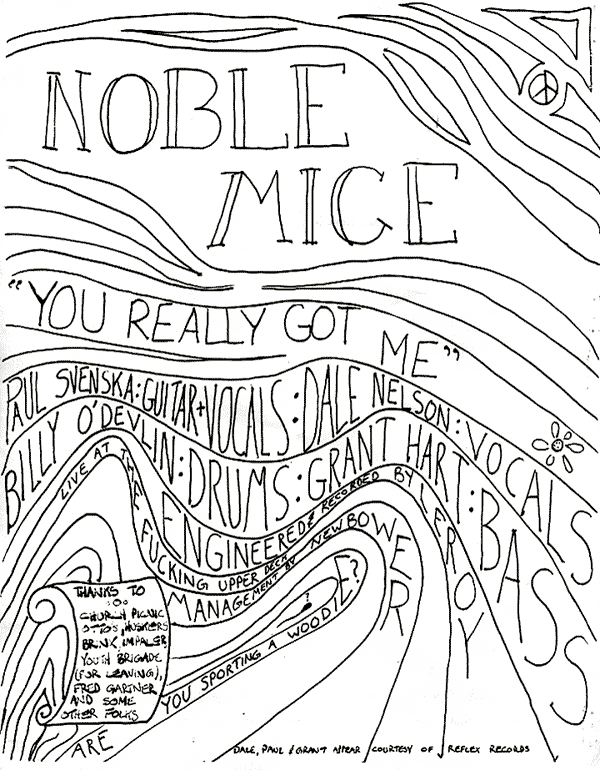 NOBLE
MICE
"YOU REALLY GOT ME"
PAUL SVENSKA: GUITAR + VOCALS: DALE NELSON: VOCALS
BILLY O'DEVLIN: DRUMS: GRANT HART: BASS
LIVE AT THE FUCKING UPPER DECK
ENGINEERED & RECORDED BY LEROY
MANAGEMENT BY NEW BOWERER
ARE YOU SPORTING A WOODIE?
?
THANKS TO
CHURCH PICNIC
OTTO'S, HUSKERS
BRINK, IMPALER,
YOUTH BRIGADE
(FOR LEAVING),
FRED GARTNER
AND SOME
OTHER FOLKS
DALE, PAUL & GRANT APPEAR COURTESY OF REFLEX RECORDS